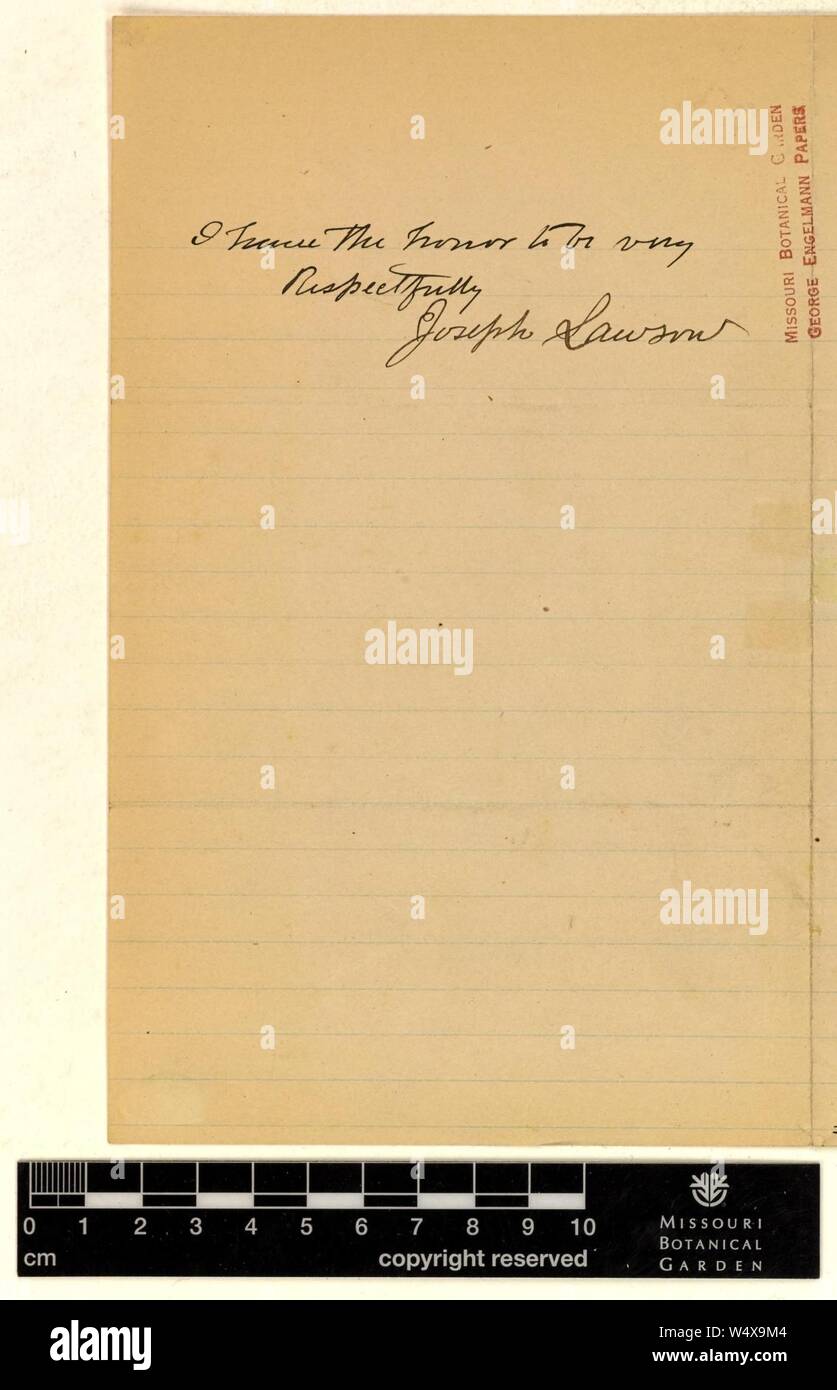 I have the honor to be very
Respectfully
Joseph Lawson
MISSOURI BOTANICAL GARDEN
GEORGE ENGELMANN PAPERS
0 1 2 3 4 5 6 7 8 9 10
cm
copyright reserved
MISSOURI
BOTANICAL
GARDEN
alamy
a
alamy
Image ID: W4X9M4
www.alamy.com